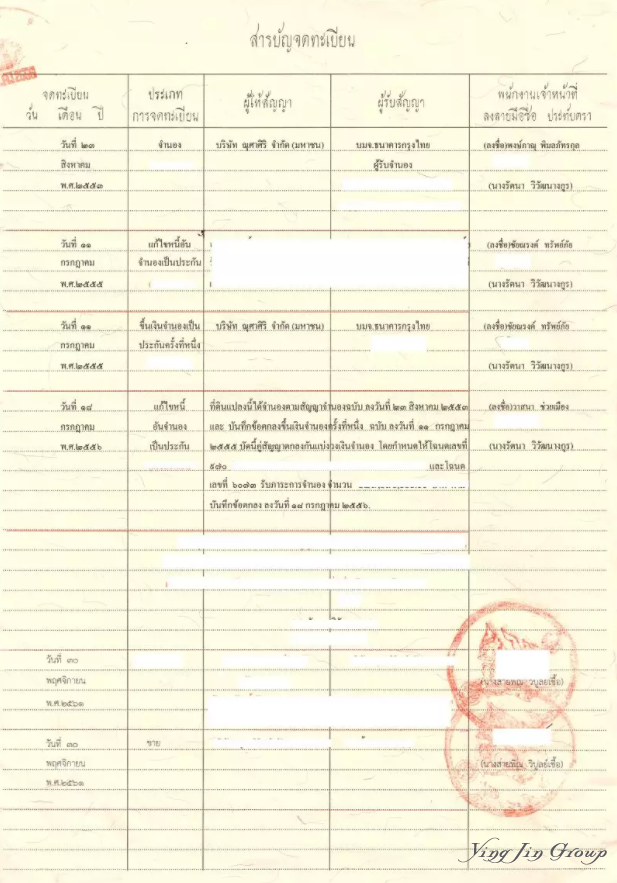 สารบัญจดทะเบียน
จดทะเบียน
วัน เดือน ปี
ประเภท
การจดทะเบียน
ผู้ให้สัญญา
ผู้รับสัญญา
พนักงานเจ้าหน้าที่
ลงลายมือชื่อ ประทับตรา
วันที่ ๒๓ จำนอง บริษัท ณุศาศิริ จำกัด (มหาชน) บมจ.ธนาคารกรุงไทย (ลงชื่อ)พงษ์ภาณุ พิมลภัทรกุล
สิงหาคม ผู้รับจำนอง
พ.ศ.๒๕๕๓ (นางรัตนา วิวัฒนางกูร)
วันที่ ๑๑ แก้ไขหนี้อัน (ลงชื่อ)ชัยณรงค์ ทรัพย์ภัย
กรกฎาคม จำนองเป็นประกัน
พ.ศ.๒๕๕๕ (นางรัตนา วิวัฒนางกูร)
วันที่ ๑๑ ขึ้นเงินจำนองเป็น บริษัท ณุศาศิริ จำกัด (มหาชน) บมจ.ธนาคารกรุงไทย (ลงชื่อ)ชัยณรงค์ ทรัพย์ภัย
กรกฎาคม ประกันครั้งที่หนึ่ง
พ.ศ.๒๕๕๕ (นางรัตนา วิวัฒนางกูร)
วันที่ ๑๘ แก้ไขหนี้ ที่ดินแปลงนี้ได้จำนองตามสัญญาจำนองฉบับ ลงวันที่ ๒๓ สิงหาคม ๒๕๕๓ (ลงชื่อ)วาสนา ช่วยเมือง
กรกฎาคม อันจำนอง และ บันทึกข้อตกลงขึ้นเงินจำนองครั้งที่หนึ่ง ฉบับ ลงวันที่ ๑๑ กรกฎาคม
พ.ศ.๒๕๕๖ เป็นประกัน ๒๕๕๕ บัดนี้คู่สัญญาตกลงกันแบ่งวงเงินจำนอง โดยกำหนดให้โฉนดเลขที่ (นางรัตนา วิวัฒนางกูร)
๕๗๐ และโฉนด
เลขที่ ๖๐๗๓ รับภาระการจำนอง จำนวน
บันทึกข้อตกลง ลงวันที่ ๑๘ กรกฎาคม ๒๕๕๖.
วันที่ ๓๐
พฤศจิกายน (นางสายพิณ วิบูลย์เชื้อ)
พ.ศ.๒๕๖๑
วันที่ ๓๐ ขาย
พฤศจิกายน (นางสายพิณ วิบูลย์เชื้อ)
พ.ศ.๒๕๖๑
Ying Jin Group